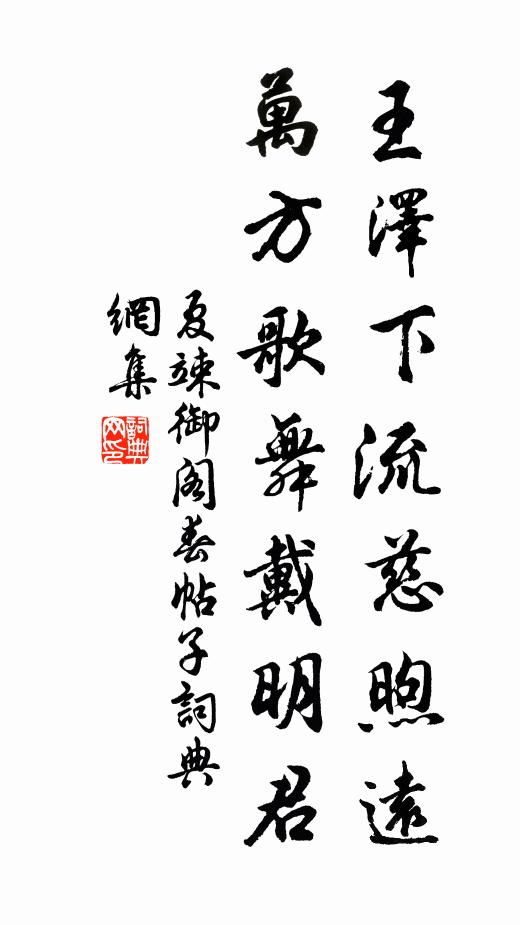 王澤下流慈煦遠
萬方歌舞戴明君
夏竦御阁春帖子詞典
網集
詞典
网印